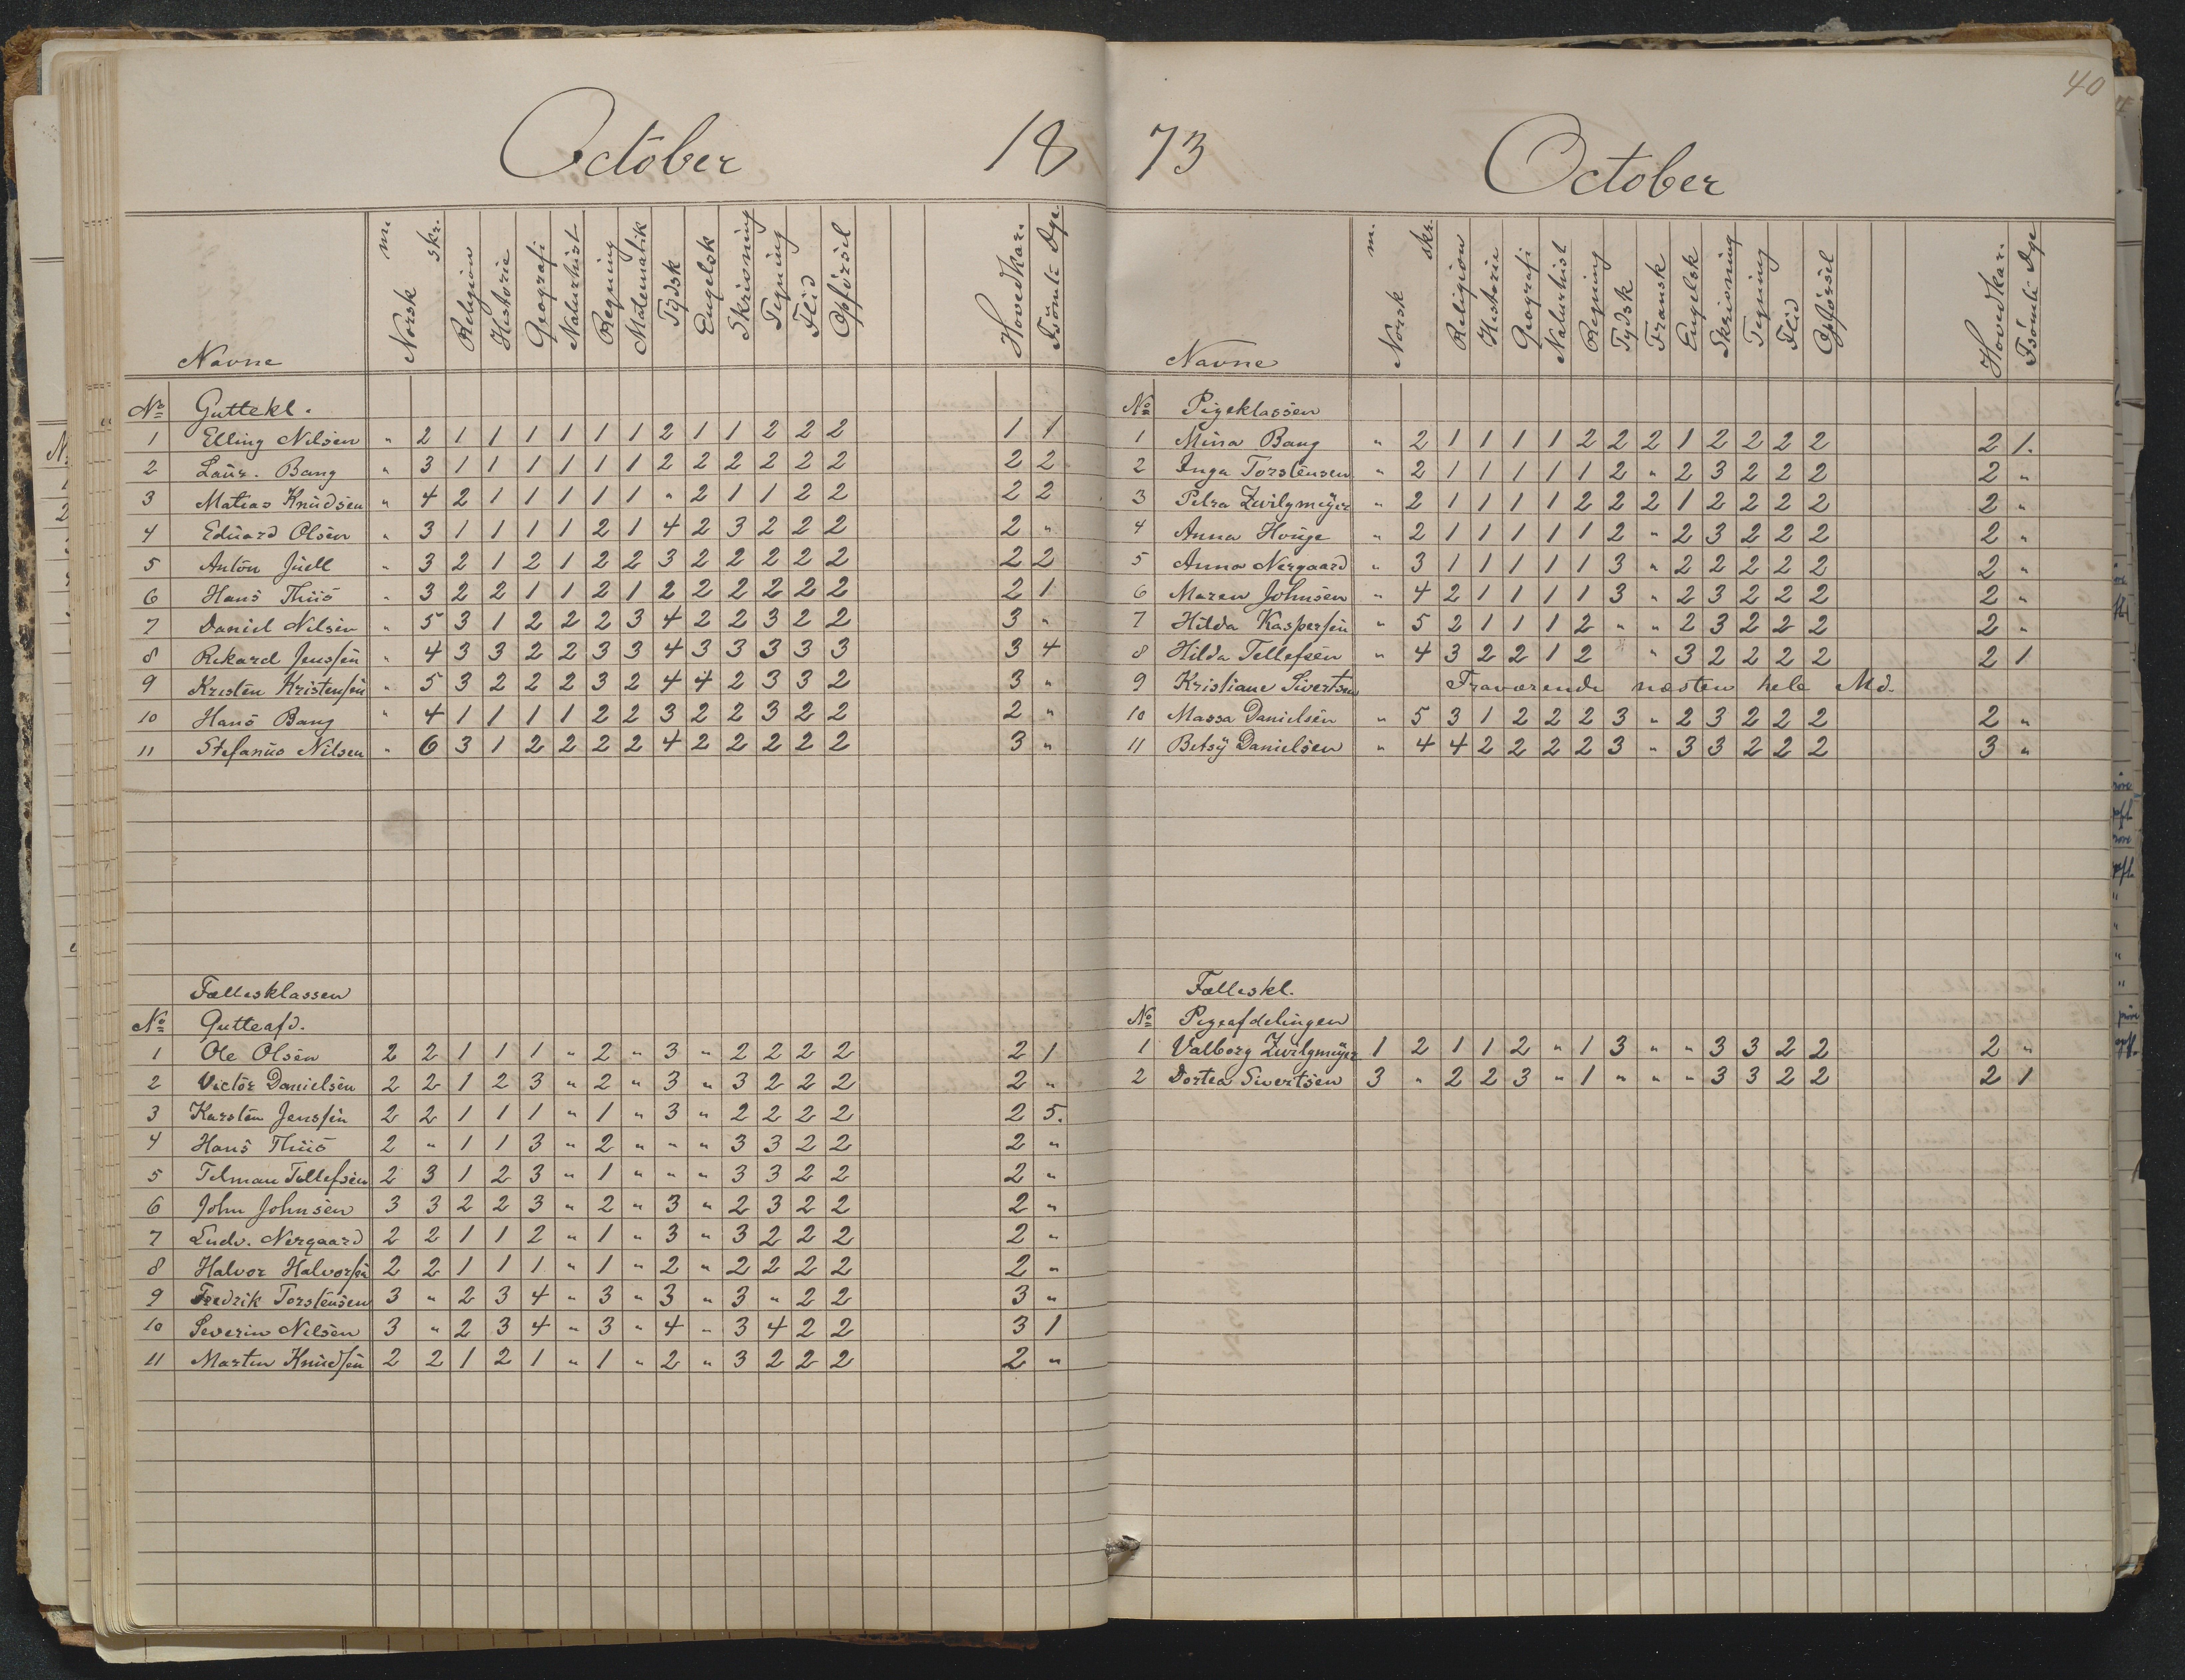 October 18
Navne Norsk m. skr. Religion Historie Geografi Naturhist Regning Matematik Tydsk Engelsk Skrivning Tegning Flid Opførsel Hovedkar. Fsömte Dge.
No Guttekl.
1 Elling Nilsen " 2 1 1 1 1 1 1 2 1 1 2 2 2 1 1
2 Laur. Bang " 3 1 1 1 1 1 1 2 2 2 2 2 2 2 2
3 Matias Knudsen " 4 2 1 1 1 1 1 " 2 1 1 2 2 2 2
4 Eduard Olsen " 3 1 1 1 1 2 1 4 2 3 2 2 2 2 "
5 Anton Juell " 3 2 1 2 1 2 2 3 2 2 2 2 2 2 2
6 Hans Thiis " 3 2 2 1 1 2 1 2 2 2 2 2 2 2 1
7 Daniel Nilsen " 5 3 1 2 2 2 3 4 2 2 3 2 2 3 "
8 Rikard Jenssen " 4 3 3 2 2 3 3 4 3 3 3 3 3 3 4
9 Kristen Kristensen " 5 3 2 2 2 3 2 4 4 2 3 3 2 3 "
10 Hans Bang " 4 1 1 1 1 2 2 3 2 2 3 2 2 2 "
11 Stefanus Nilsen " 6 3 1 2 2 2 2 4 2 2 2 2 2 3 "
Fællesklassen
No Gutteafd.
1 Ole Olsen 2 2 1 1 1 " 2 " 3 " 2 2 2 2 2 1
2 Victor Danielsen 2 2 1 2 3 " 2 " 3 " 3 2 2 2 2 "
3 Karsten Jenssen 2 2 1 1 1 " 1 " 3 " 2 2 2 2 2 5.
4 Hans Thiis 2 " 1 1 3 " 2 " " " 3 3 2 2 2 "
5 Telman Tellefsen 2 3 1 2 3 " 1 " " " 3 3 2 2 2 "
6 John Johnsen 3 3 2 2 3 " 2 " 3 " 2 3 2 2 2 "
7 Ludv. Nergaard 2 2 1 1 2 " 1 " 3 " 3 2 2 2 2 "
8 Halvor Halvorsen 2 2 1 1 1 " 1 " 2 " 2 2 2 2 2 "
9 Fredrik Torstensen 3 " 2 3 4 " 3 " 3 " 3 " 2 2 3 "
10 Severin Nilsen 3 " 2 3 4 " 3 " 4 " 3 4 2 2 3 1
11 Martin Knudsen 2 2 1 2 1 " 1 " 2 " 3 2 2 2 2 "
40
73 October
Navne Norsk m. skr. Religion Historie Geografi Naturhist Regning Tydsk Fransk Engelsk Skrivning Tegning Flid Opførsel Hovedkar. Fsömte Dge
No Pigeklassen
1 Mina Bang " 2 1 1 1 1 2 2 2 1 2 2 2 2 2 1.
2 Inga Torstensen " 2 1 1 1 1 1 2 " 2 3 2 2 2 2 "
3 Petra Zwilgmeyer " 2 1 1 1 1 2 2 2 1 2 2 2 2 2 "
4 Anna Houge " 2 1 1 1 1 1 2 " 2 3 2 2 2 2 "
5 Anna Nergaard " 3 1 1 1 1 1 3 " 2 2 2 2 2 2 "
6 Maren Johnsen " 4 2 1 1 1 1 3 " 2 3 2 2 2 2 "
7 Hilda Kaspersen " 5 2 1 1 1 2 " " 2 3 2 2 2 2 "
8 Hilda Tellefsen " 4 3 2 2 1 2 " 3 2 2 2 2 2 1
9 Kristiane Sivertsen Fraværende næsten hele Md.
10 Massa Danielsen " 5 3 1 2 2 2 3 " 2 3 2 2 2 2 "
11 Betsy Danielsen " 4 4 2 2 2 2 3 " 3 3 2 2 2 3 "
Fælleskl.
No Pigeafdelingen
1 Valborg Zwilgmeyer 1 2 1 1 2 " 1 3 " " 3 3 2 2 2 "
2 Dortea Sivertsen 3 " 2 2 3 " 1 " " " 3 3 2 2 2 1